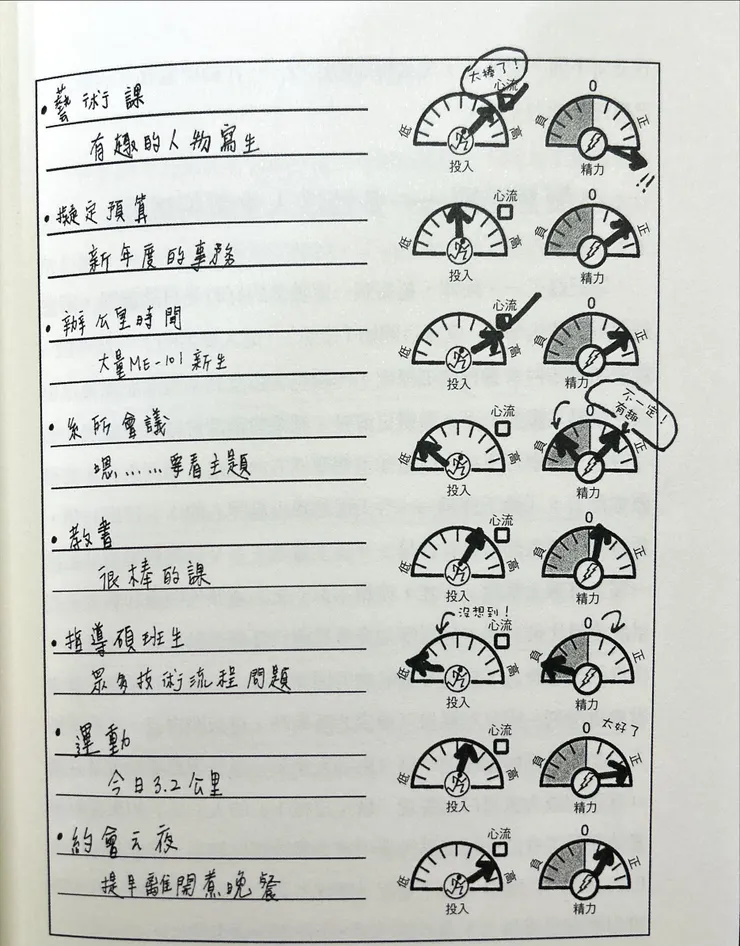 太棒了！
• 藝術課
心流
0
低 高 負 正
有趣的人物寫生
投入 精力
!!
• 擬定預算
心流
0
低 高 負 正
新年度的事務
投入 精力
• 辦公室時間
心流
0
低 高 負 正
大量ME-101新生
投入 精力
不一定！
有趣
• 系所會議
心流
0
低 高 負 正
嗯……要看主題
投入 精力
• 教書
心流
0
低 高 負 正
很棒的課
投入 精力
沒想到！
• 指導碩班生
心流
0
低 高 負 正
眾多技術流程問題
投入 精力
太好了
• 運動
心流
0
低 高 負 正
今日3.2公里
投入 精力
• 約會之夜
心流
0
低 高 負 正
提早離開煮晚餐
投入 精力